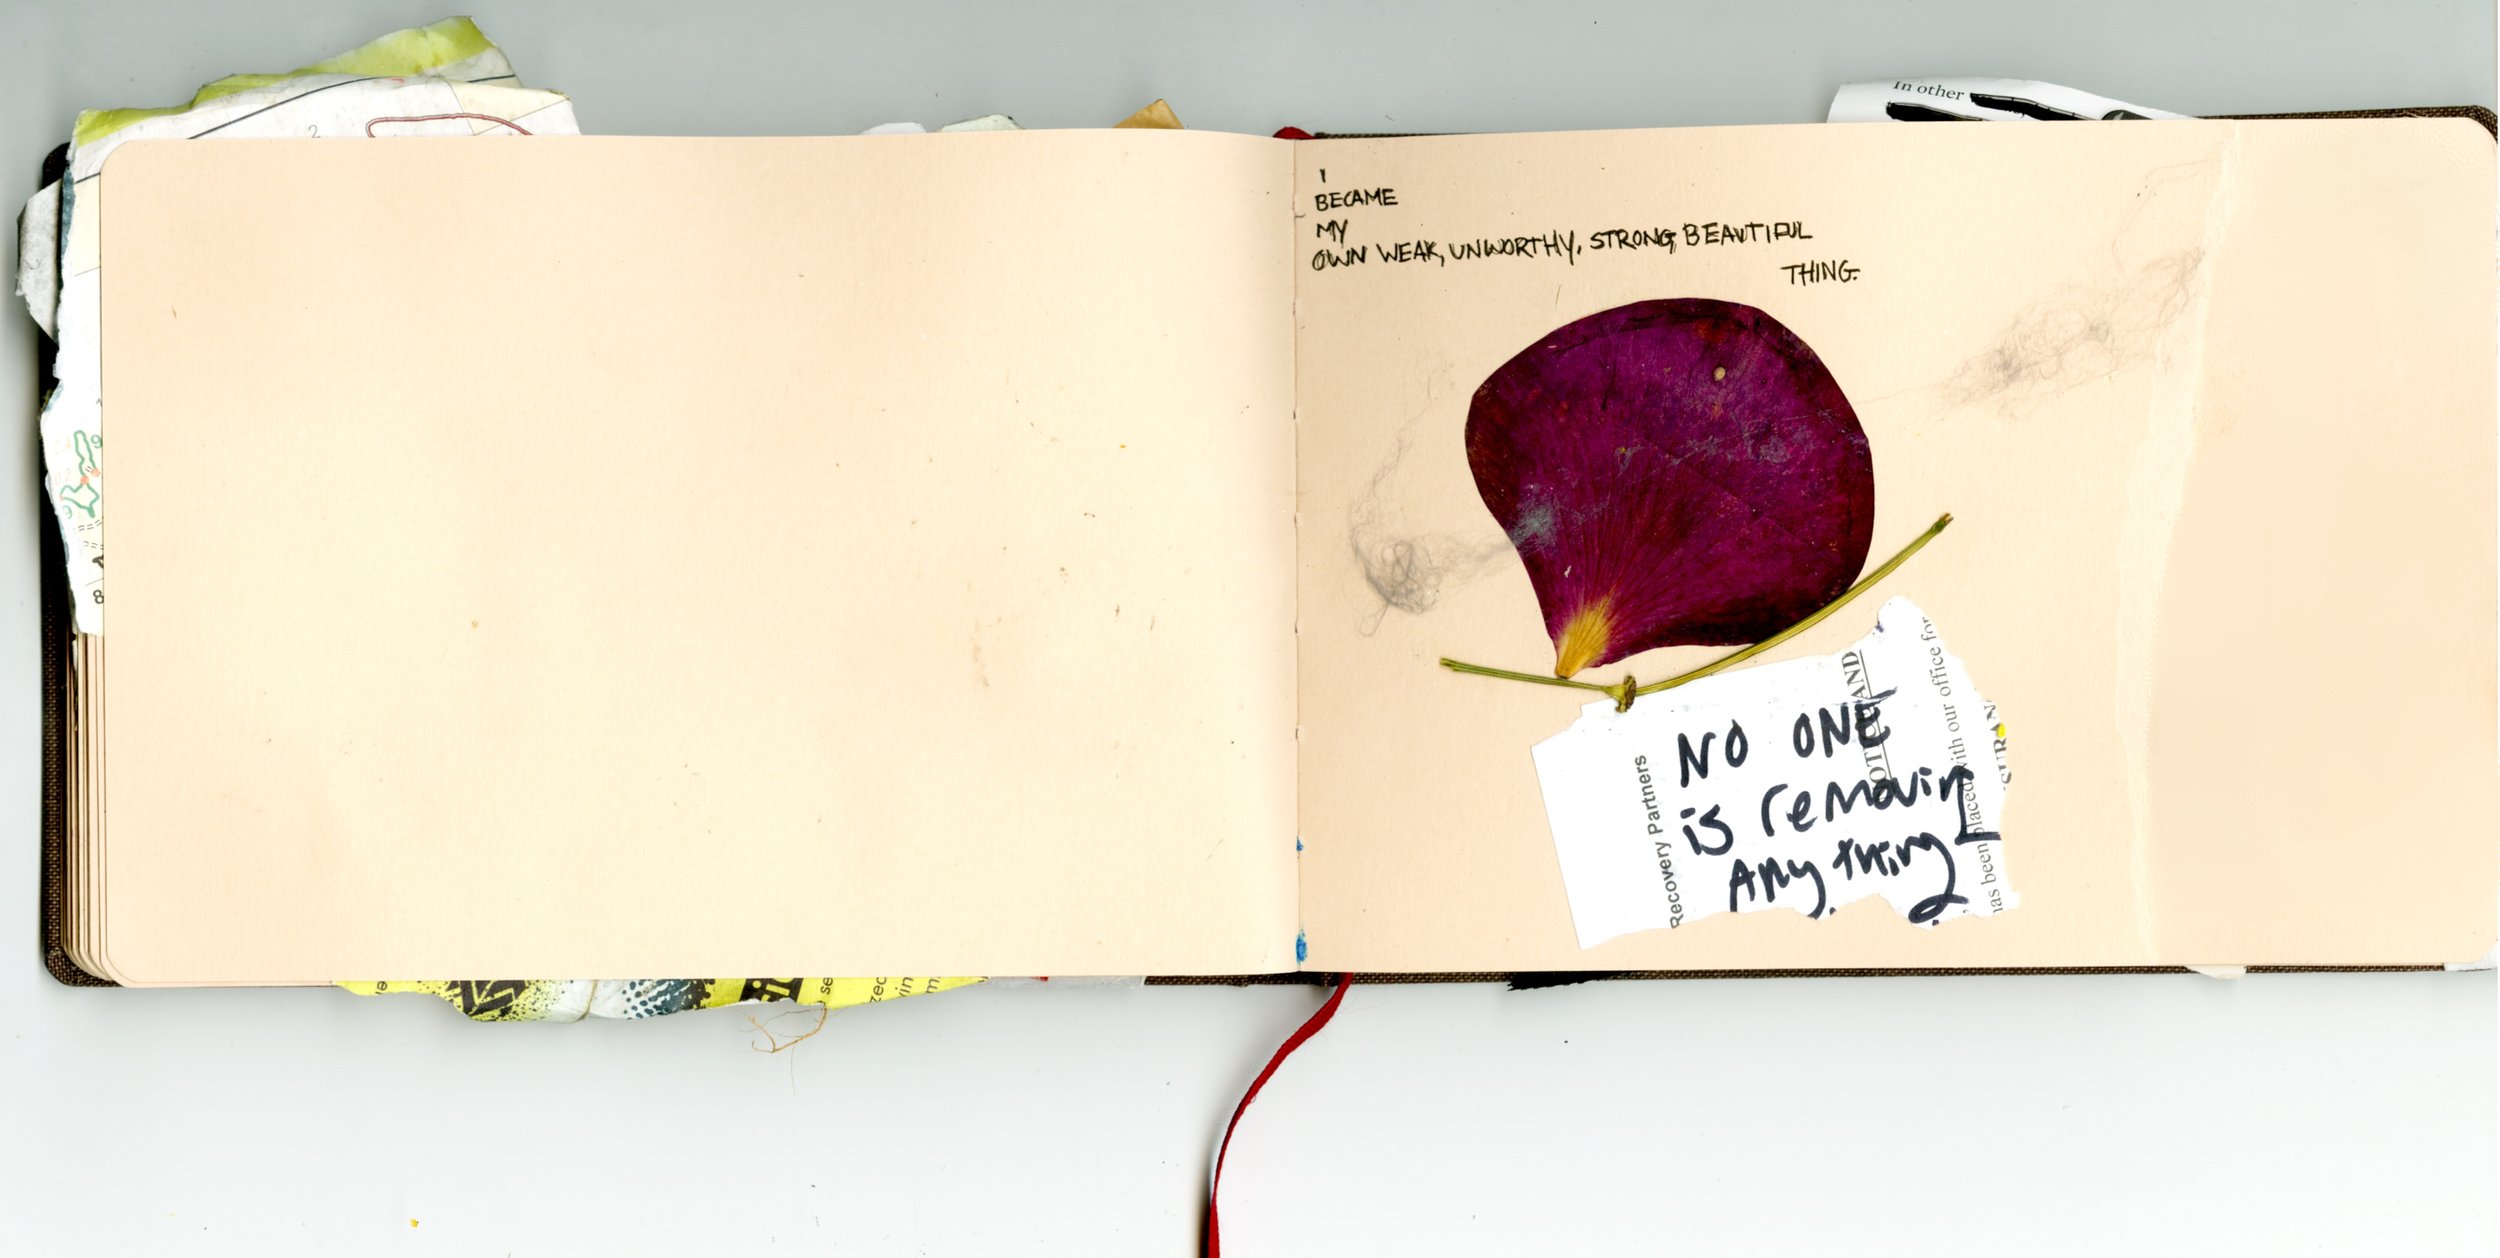 2
9
9
8
In other
I
BECAME
MY
OWN WEAK, UNWORTHY, STRONG, BEAUTIFUL
THING.
NO ONE
is removing
Anything
Recovery Partners
AND
has been placed with our office for
se